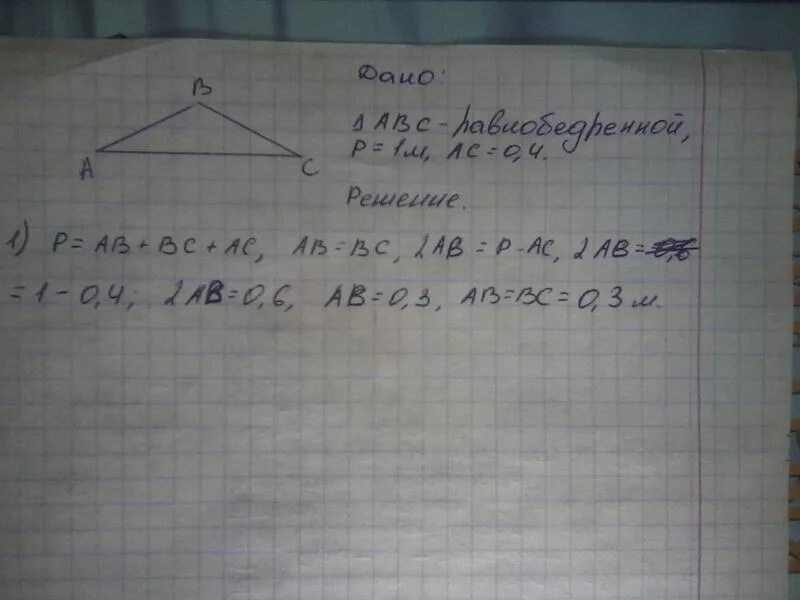 Дано:
B
A
C
Δ ABC - равнобедренной,
P = 1м, AC = 0,4.
Решение.
1) P = AB + BC + AC, AB = BC, 2AB = P - AC, 2AB =
= 1 - 0,4; 2AB = 0,6, AB = 0,3, AB = BC = 0,3 м.